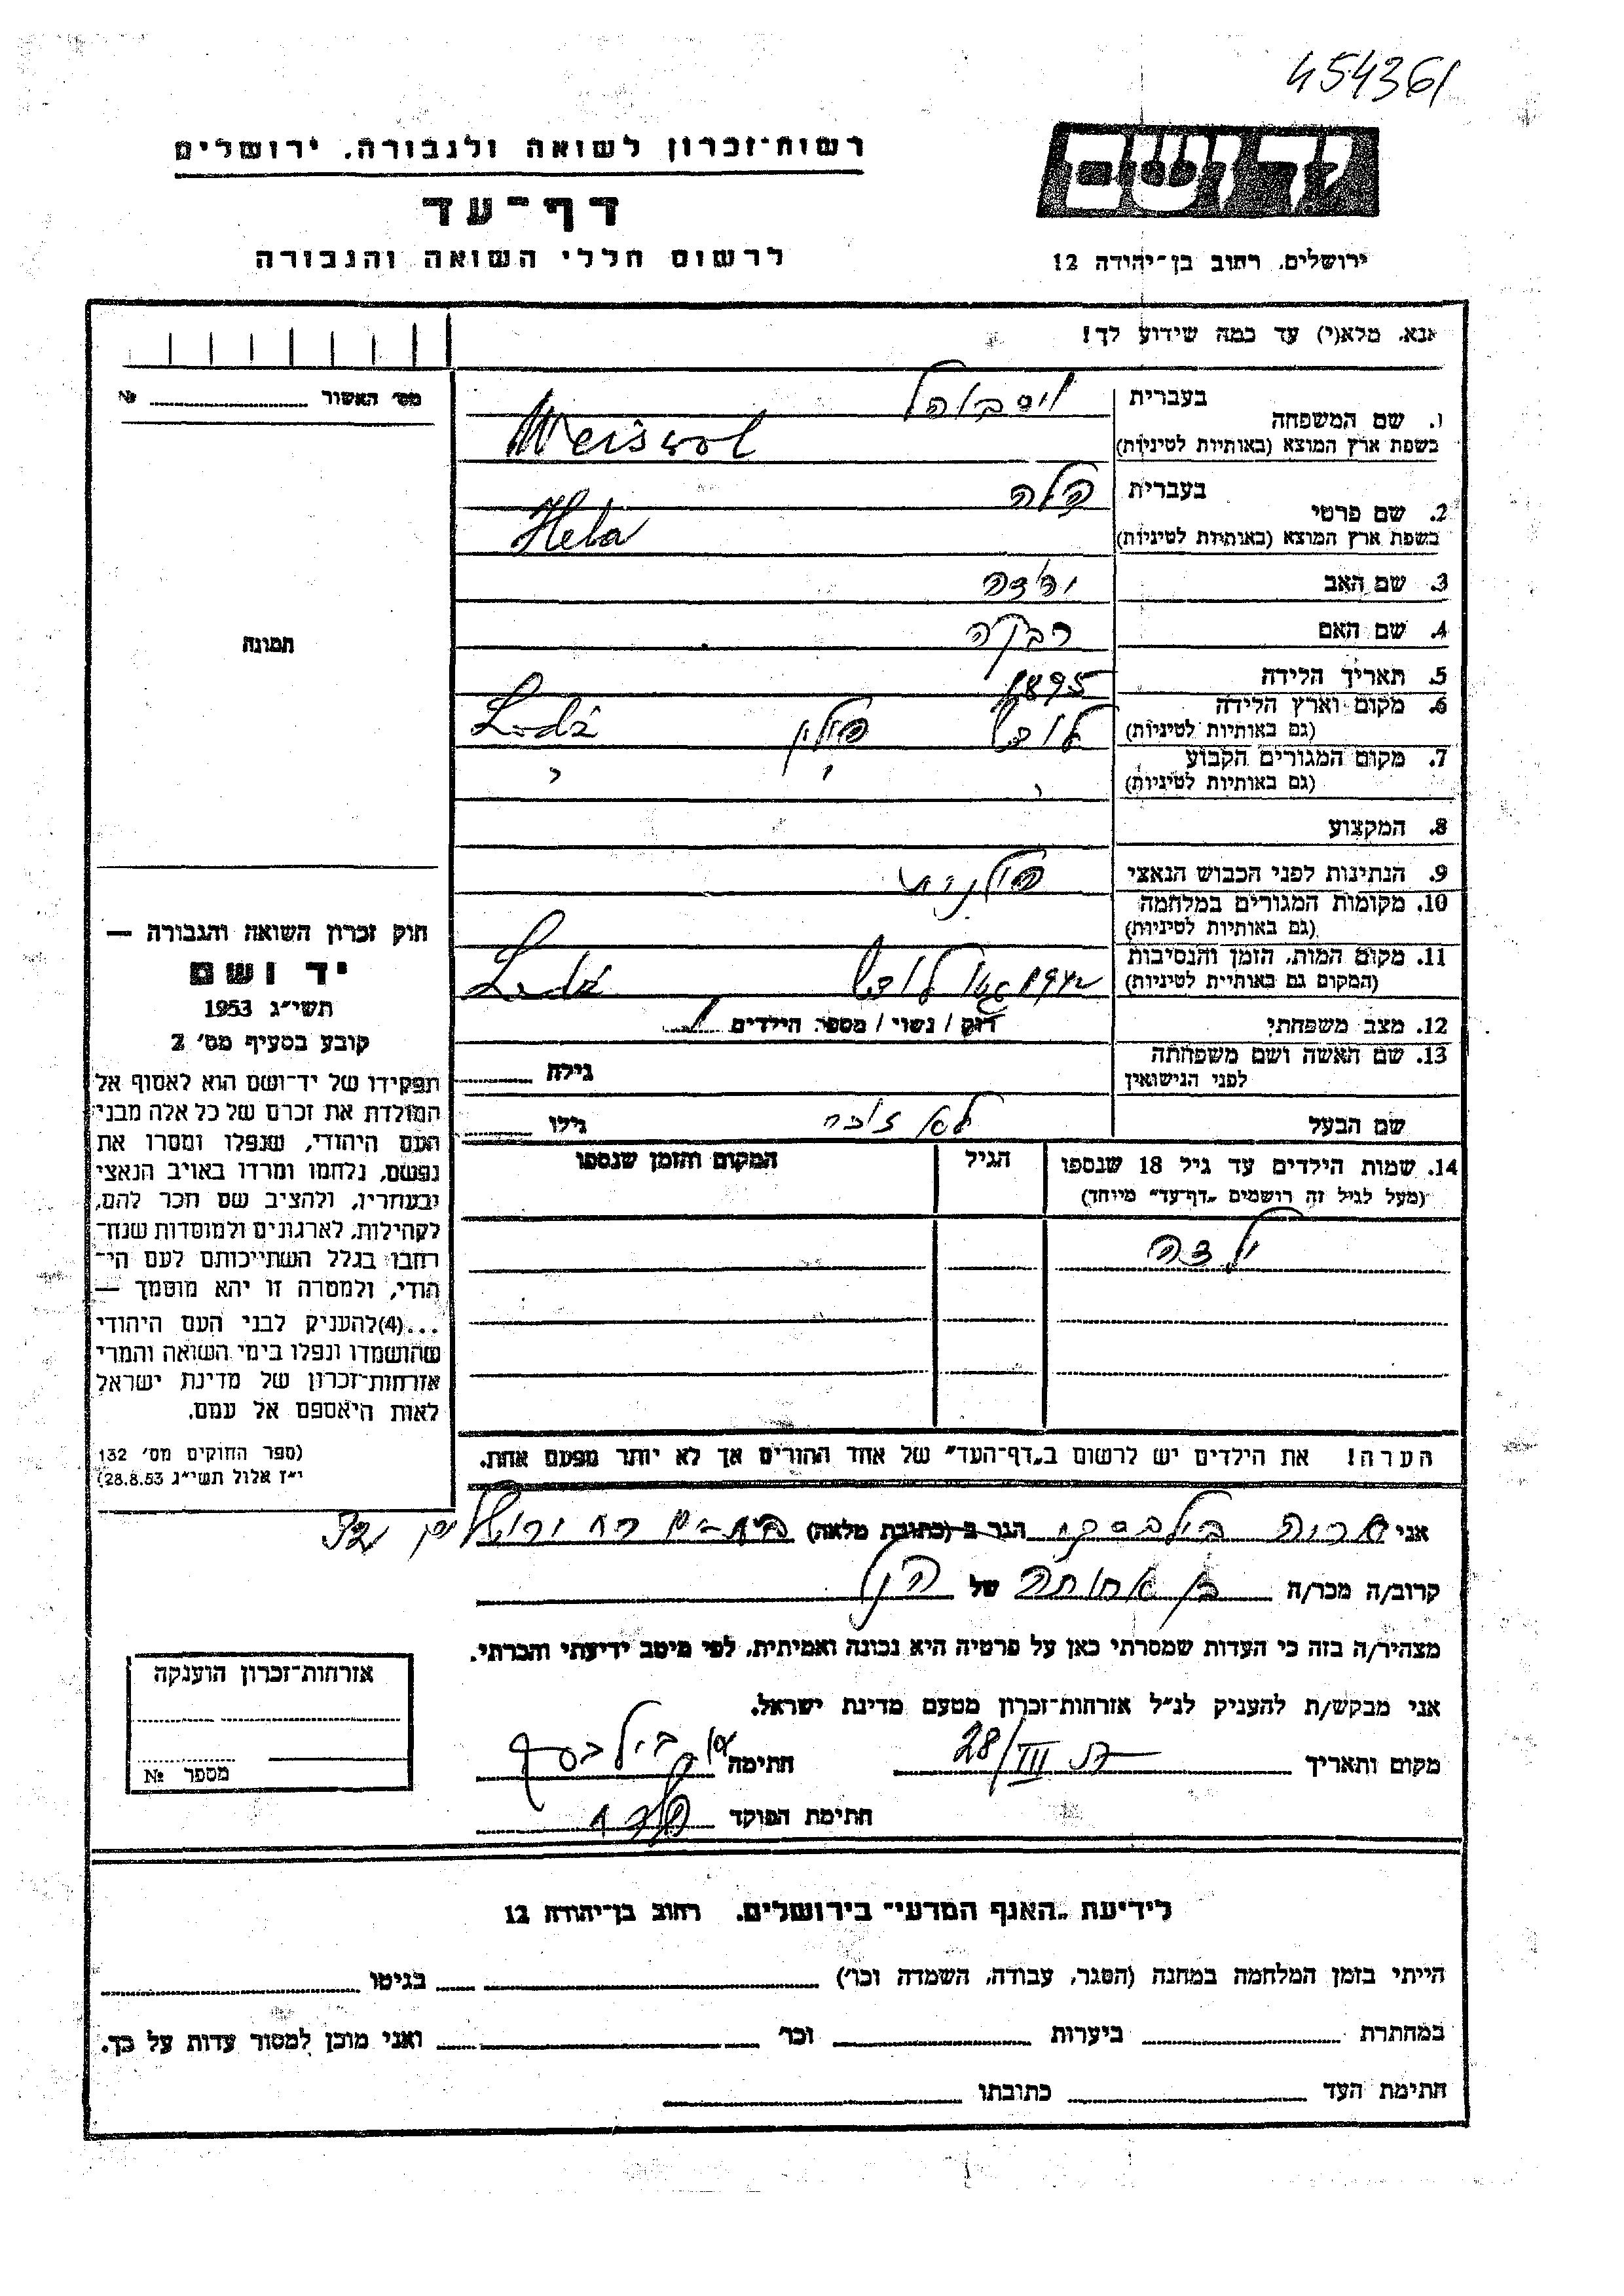 454361
רשות־זכרון לשואה ולגבורה. ירושלים
דף־עד
לרשום חללי השואה והגבורה
יד ושם
ירושלים, רחוב בן־יהודה 12
אנא, מלא(י) עד כמה שידוע לך!
מס' האשור № 
תמונה
1. שם המשפחה בעברית
בשפת ארץ המוצא (באותיות לטיניות) Weiswol
2. שם פרטי בעברית הלה
בשפת ארץ המוצא (באותיות לטיניות) Hela
3. שם האב יהודה
4. שם האם רבקה
5. תאריך הלידה 1895
6. מקום וארץ הלידה לודז' פולין Lodź
(גם באותיות לטיניות)
7. מקום המגורים הקבוע
(גם באותיות לטיניות)
8. המקצוע
9. הנתינות לפני הכבוש הנאצי פולנית
10. מקומות המגורים במלחמה
(גם באותיות לטיניות)
11. מקום המות, הזמן והנסיבות גטו לודז' Lodź
(המקום גם באותיות לטיניות)
12. מצב משפחתי רוק / נשוי / מספר הילדים 1
13. שם האשה ושם משפחתה גילה
לפני הנישואין
שם הבעל לא זוכר גילו
14. שמות הילדים עד גיל 18 שנספו הגיל המקום והזמן שנספו
(מעל לגיל זה רושמים „דף־עד” מיוחד)
ילדה
הערה! את הילדים יש לרשום ב„דף־העד” של אחד ההורים אך לא יותר מפעם אחת.
חוק זכרון השואה והגבורה —
יד ושם
תשי״ג 1953
קובע בסעיף מס' 2
תפקידו של יד־ושם הוא לאסוף אל
המולדת את זכרם של כל אלה מבני
העם היהודי, שנפלו ומסרו את
נפשם, נלחמו ומרדו באויב הנאצי
ובעוזריו, ולהציב שם וזכר להם,
לקהילות, לארגונים ולמוסדות שנח־
רבו בגלל השתייכותם לעם הי־
הודי, ולמטרה זו יהא מוסמך —
...(4) להעניק לבני העם היהודי
שהושמדו ונפלו בימי השואה והמרי
אזרחות־זכרון של מדינת ישראל
לאות היאספם אל עמם.
(ספר החוקים מס' 132
י״ז אלול תשי״ג 28.8.53)
אני הגר ב (כתובת מלאה) בת־ים רח ירושלים
קרוב/ה מכר/ה בן אחותה של הנ"ל
מצהיר/ה בזה כי העדות שמסרתי כאן על פרטיה היא נכונה ואמיתית, לפי מיטב ידיעתי והכרתי.
אני מבקש/ת להעניק לנ״ל אזרחות־זכרון מטעם מדינת ישראל.
מקום ותאריך 28/III חתימה
חתימת הפוקד
אזרחות־זכרון הוענקה
מספר №
לידיעת „האגף המדעי” בירושלים. רחוב בן־יהודה 12
הייתי בזמן המלחמה במחנה (הסגר, עבודה, השמדה וכו') בגיטו
במחתרת ביערות וכו' ואני מוכן למסור עדות על כך.
חתימת העד כתובתו